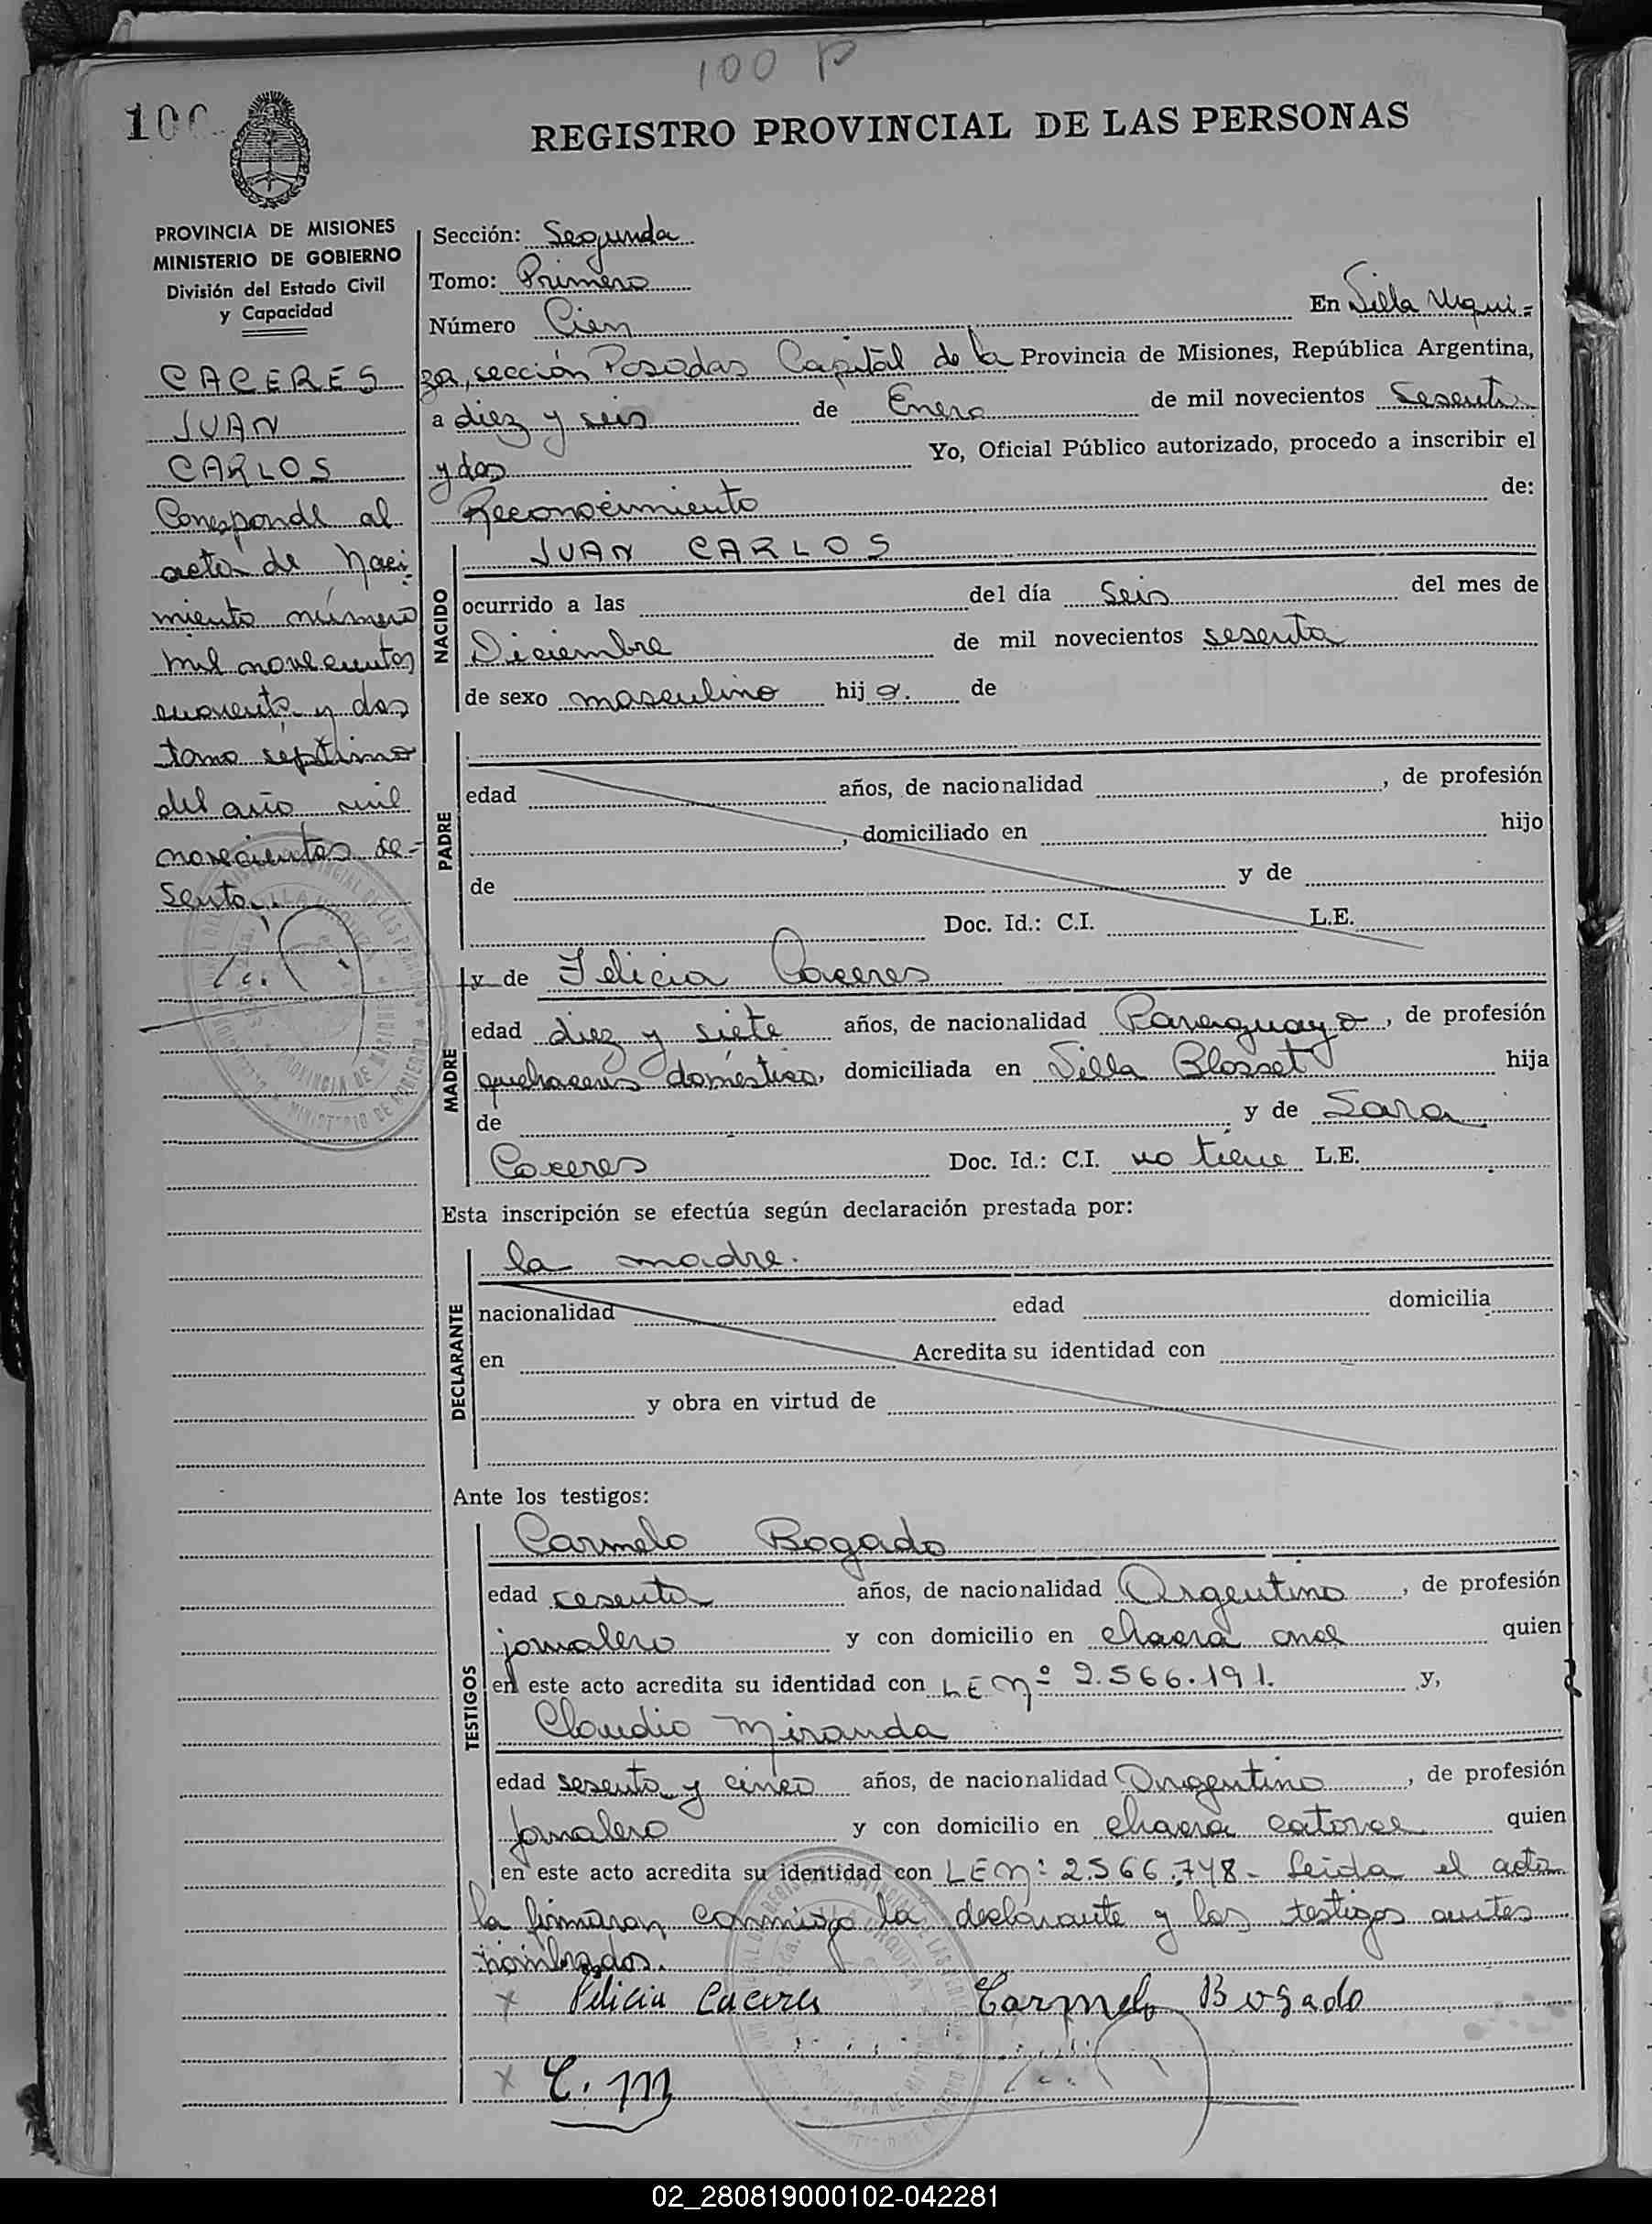 100 P
100
REGISTRO PROVINCIAL DE LAS PERSONAS
PROVINCIA DE MISIONES
MINISTERIO DE GOBIERNO
División del Estado Civil
y Capacidad
CACERES
JUAN
CARLOS
Corresponde al
acta de Naci
miento número
mil novecientos
cuarenta y dos
tomo séptimo
del año mil
novecientos se-
senta.
Sección: Segunda
Tomo: Primero
Número Cien En Villa Urqui-
za, sección Posadas Capital de la Provincia de Misiones, República Argentina,
a diez y seis de Enero de mil novecientos sesenta
y dos Yo, Oficial Público autorizado, procedo a inscribir el
Reconocimiento de:
NACIDO
JUAN CARLOS
ocurrido a las del día seis del mes de
Diciembre de mil novecientos sesenta
de sexo masculino hijo. de
PADRE
edad años, de nacionalidad , de profesión
, domiciliado en hijo
de y de
Doc. Id.: C.I. L.E.
MADRE
y de Felicia Caceres
edad diez y siete años, de nacionalidad Paraguaya, de profesión
quehaceres domésticos, domiciliada en Villa Blosset hija
de y de Sara
Caceres Doc. Id.: C.I. no tiene L.E.
Esta inscripción se efectúa según declaración prestada por:
DECLARANTE
la madre.
nacionalidad edad domicilia
en Acredita su identidad con
y obra en virtud de
Ante los testigos:
TESTIGOS
Carmelo Bogado
edad sesenta años, de nacionalidad Argentino, de profesión
jornalero y con domicilio en chacra once quien
en este acto acredita su identidad con LE Nº 2.566.191. y,
Claudio Miranda
edad sesenta y cinco años, de nacionalidad Argentino, de profesión
jornalero y con domicilio en chacra catorce quien
en este acto acredita su identidad con LE N: 2.566.748 - Leida el acta
la firmaron conmigo la declarante y los testigos antes
nombrados.
x Felicia Caceres Carmelo Bogado
x C. M
02_280819000102-042281